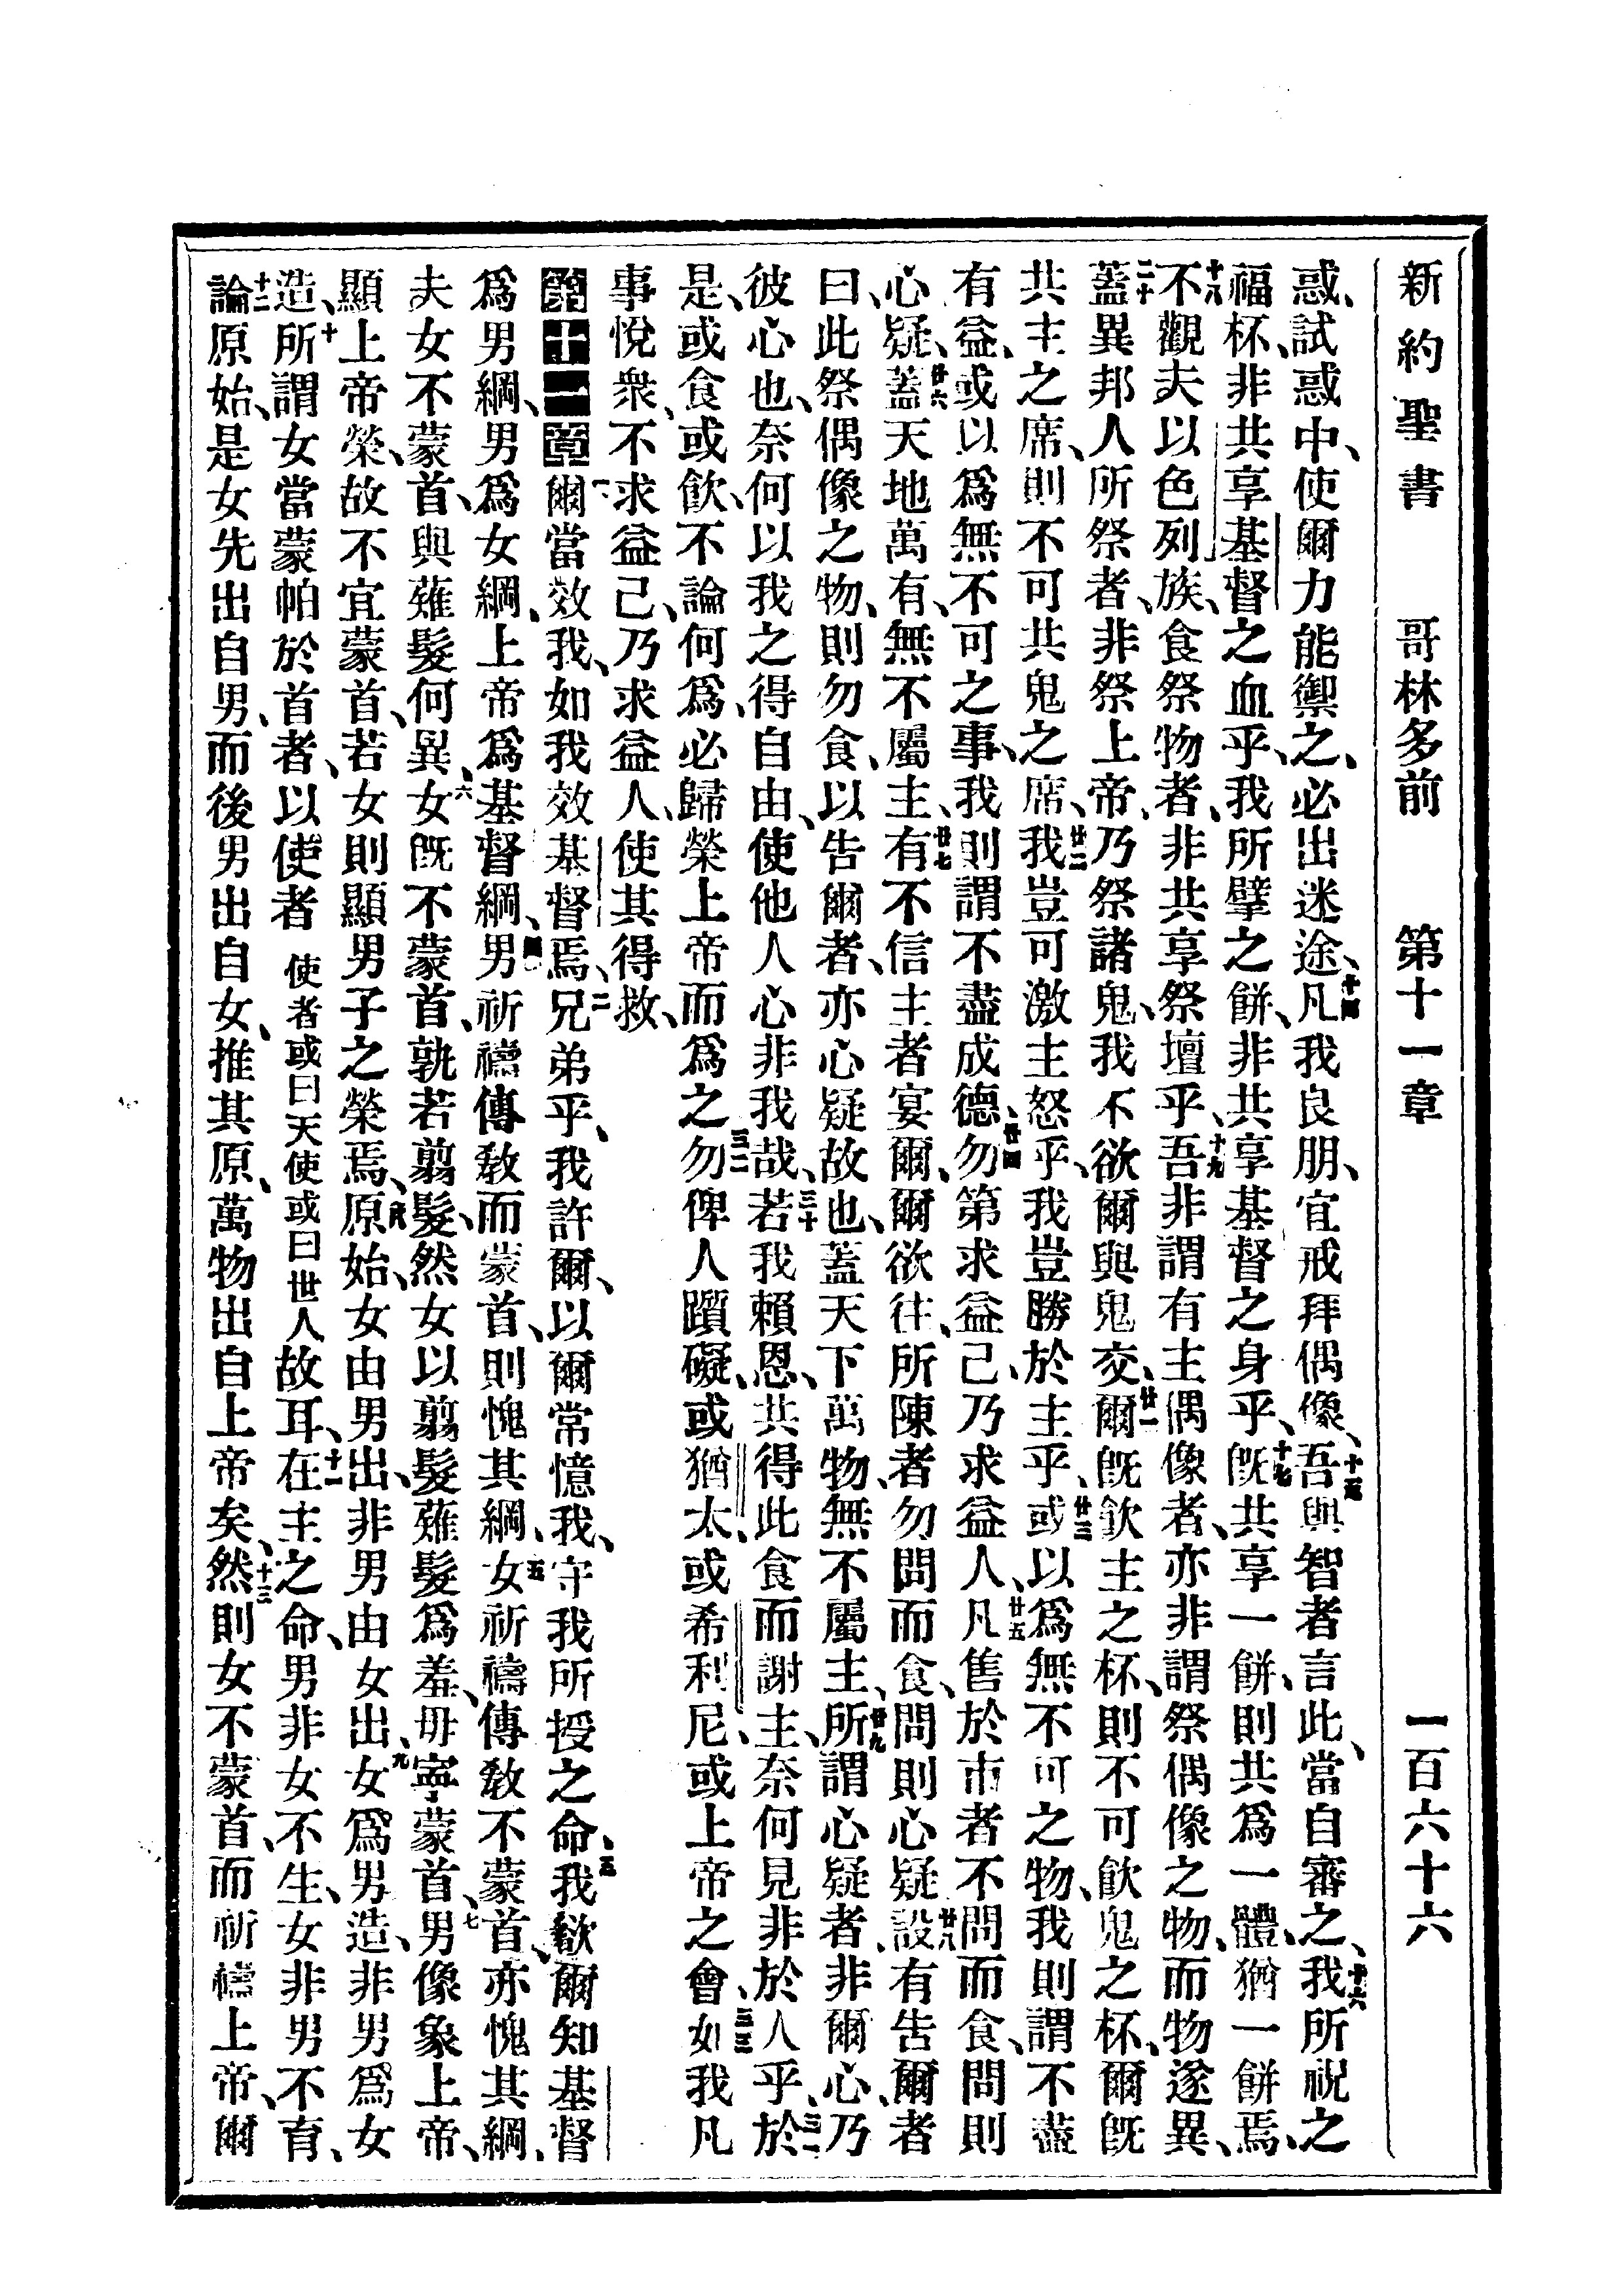 新約聖書　哥林多前　第十一章　一百六十六
惑、試惑中、使爾力能禦之、必出迷途、十四凡我良朋、宜戒拜偶像、十五吾與智者言此、當自審之、十六我所祝之
福杯、非共享基督之血乎、我所擘之餅、非共享基督之身乎、十七旣共享一餅、則共爲一體、猶一餅焉、
十八不觀夫以色列族、食祭物者、非共享祭壇乎、十九吾非謂有主偶像者、亦非謂祭偶像之物、而物遂異、
二十蓋異邦人所祭者、非祭上帝、乃祭諸鬼、我不欲爾與鬼交、廿一爾旣飲主之杯、則不可飲鬼之杯、爾旣
共主之席、則不可共鬼之席、廿二我豈可激主怒乎、我豈勝於主乎、廿三或以爲無不可之物、我則謂不盡
有益、或以爲無不可之事、我則謂不盡成德、廿四勿第求益己、乃求益人、廿五凡售於市者、不問而食、問則
心疑、廿六蓋天地萬有、無不屬主、廿七有不信主者宴爾、爾欲往、所陳者、勿問而食、問則心疑、廿八設有告爾者
曰、此祭偶像之物、則勿食、以告爾者、亦心疑故也、蓋天下萬物、無不屬主、廿九所謂心疑者、非爾心、乃
彼心也、奈何以我之得自由、使他人心非我哉、三十若我賴恩、共得此食而謝主、奈何見非於人乎、三一於
是、或食或飲、不論何爲、必歸榮上帝而爲之、三二勿俾人躓礙、或猶太、或希利尼、或上帝之會、三三如我凡
事悅衆、不求益己、乃求益人、使其得救、
第十一章一、爾當效我、如我效基督焉、二兄弟乎、我許爾、以爾常憶我、守我所授之命、三我欲爾知基督
爲男綱、男爲女綱、上帝爲基督綱、四男祈禱傳敎而蒙首、則愧其綱、五女祈禱傳敎不蒙首、亦愧其綱、
夫女不蒙首、與薙髮何異、六女旣不蒙首、孰若翦髮、然女以翦髮薙髮爲羞、毋寧蒙首、七男像象上帝、
顯上帝榮、故不宜蒙首、若女則顯男子之榮焉、八原始、女由男出、非男由女出、九女爲男造、非男爲女
造、十所謂女當蒙帕於首者、以使者使者或曰天使或曰世人故耳、十一在主之命、男非女不生、女非男不育、
十二論原始、是女先出自男、而後男出自女、推其原、萬物出自上帝矣、十三然則女不蒙首、而祈禱上帝、爾